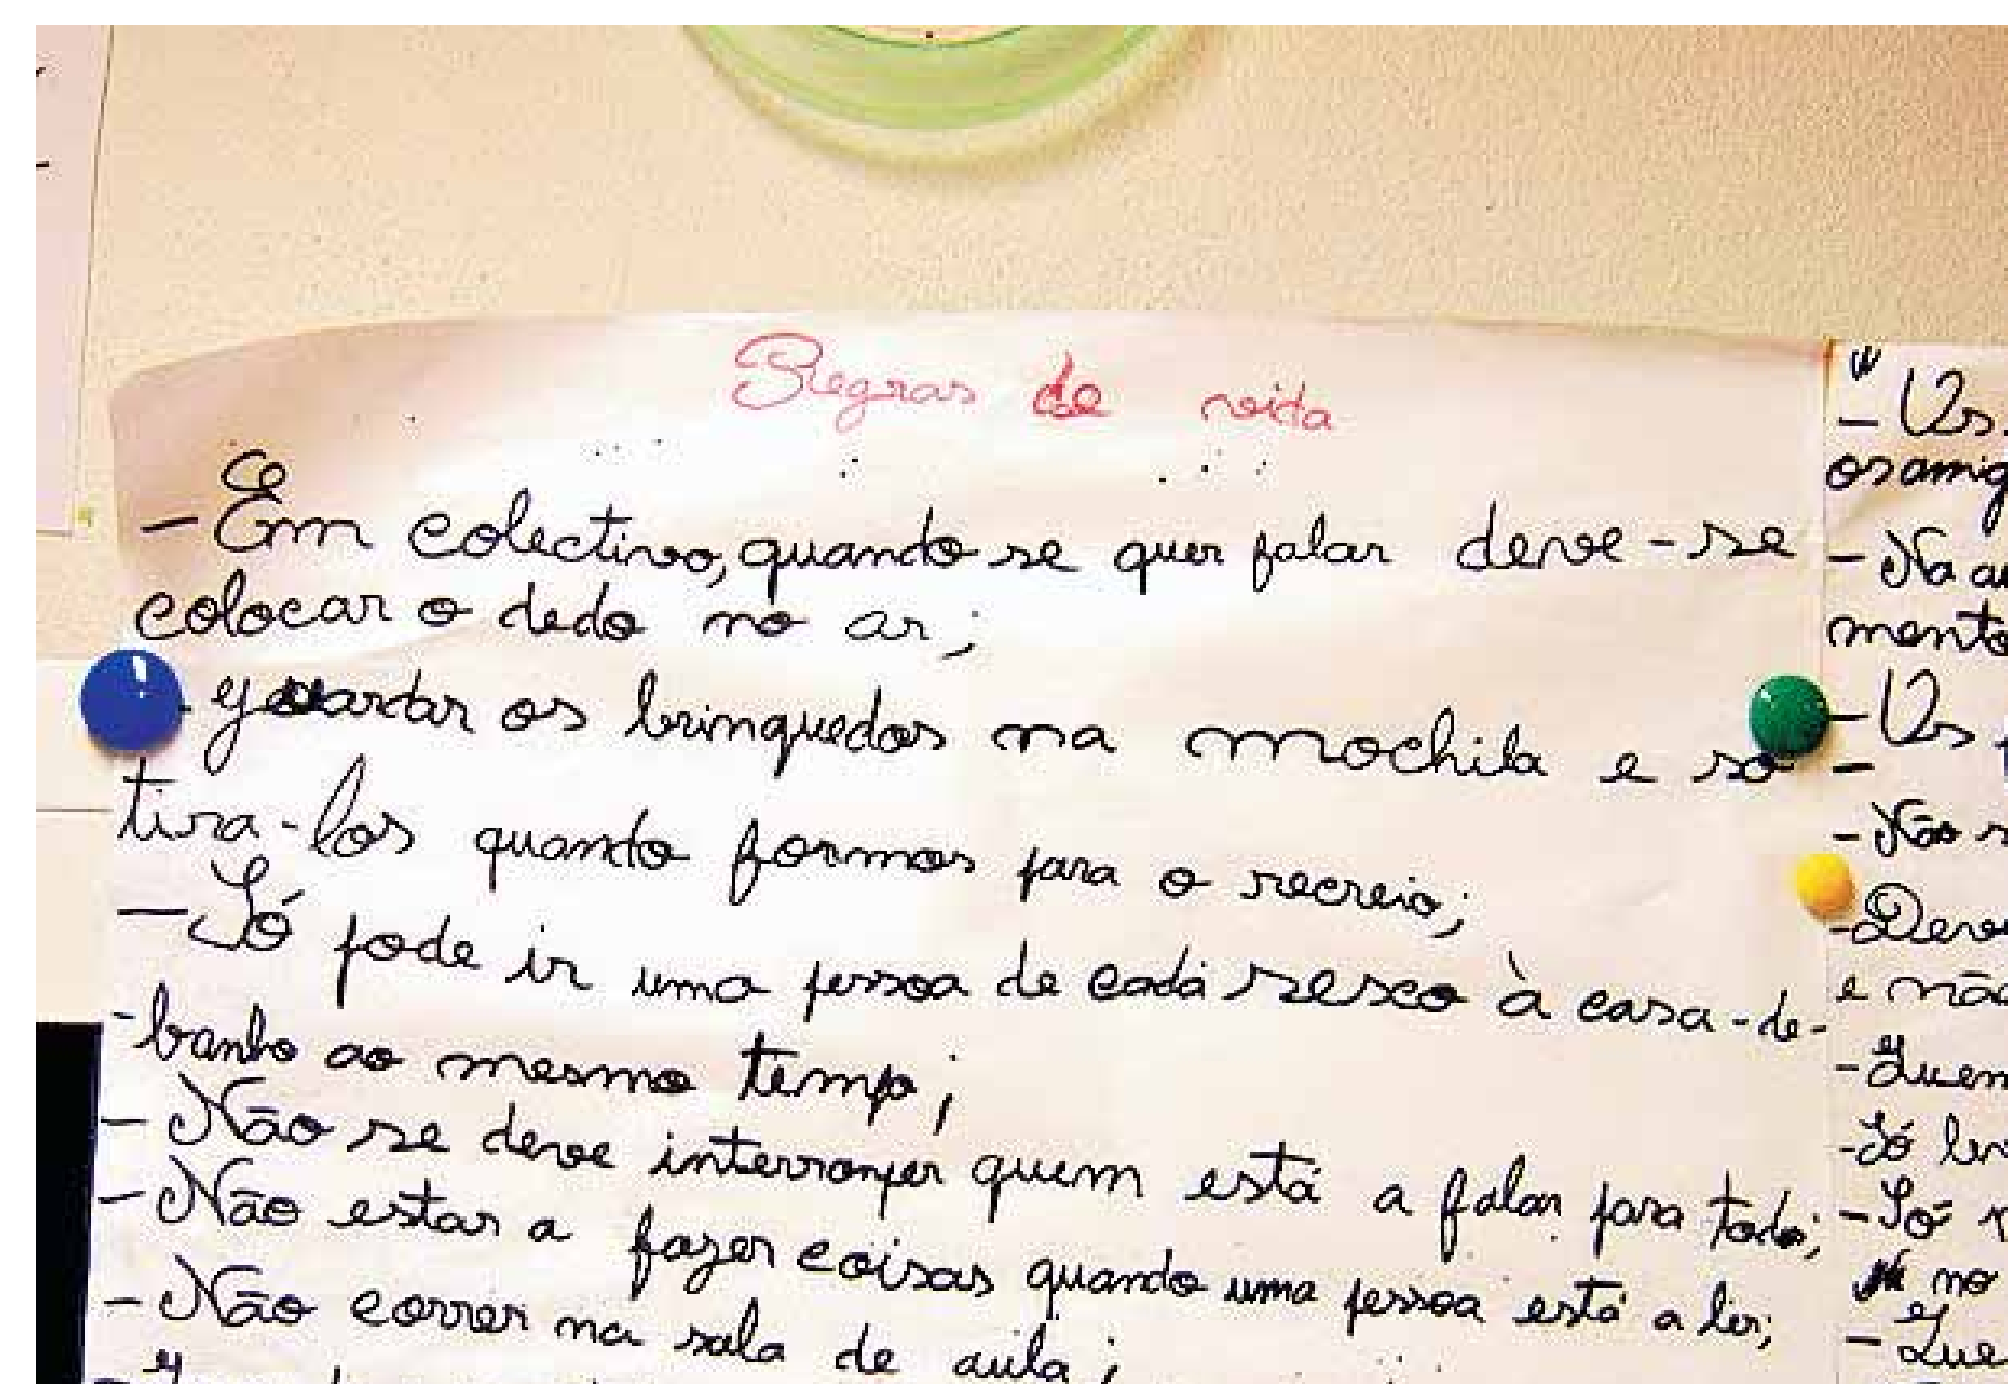 Regras de vida
- Em colectivo, quando se quer falar deve-se
colocar o dedo no ar;
- guardar os brinquedos na mochila e só
tira-los quando formos para o recreio;
- Só pode ir uma pessoa de cada sexo à casa-de-
-banho ao mesmo tempo;
- Não se deve interromper quem está a falar para todo;
- Não estar a fazer coisas quando uma pessoa está a ler;
- Não correr na sala de aula;
- Os
os amig
- Na
mento
- Os
- Não
- Deve
e não
- Quem
- Só
- Só
no
- Que